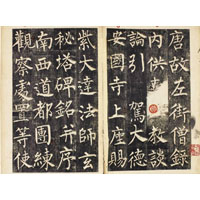 唐故左街僧錄
內供 教談
論引駕大德
安國寺上座賜
紫大達法師玄
秘塔碑銘并序
南西道都團練
觀察處置等使